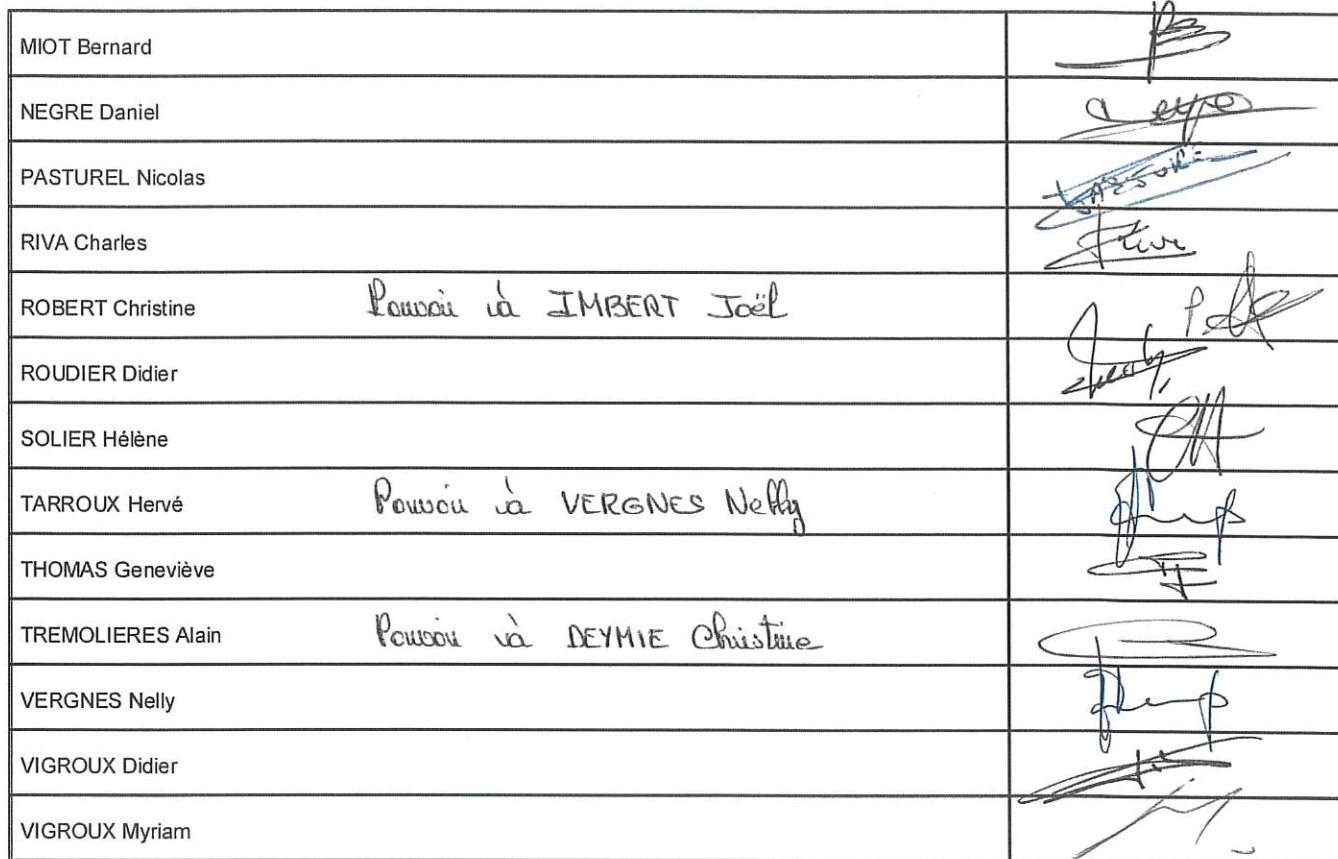 MIOT Bernard
NEGRE Daniel
PASTUREL Nicolas
RIVA Charles
ROBERT Christine Pouvoir à IMBERT Joël
ROUDIER Didier
SOLIER Hélène
TARROUX Hervé Pouvoir à VERGNES Nelly
THOMAS Geneviève
TREMOLIERES Alain Pouvoir à DEYMIE Christine
VERGNES Nelly
VIGROUX Didier
VIGROUX Myriam